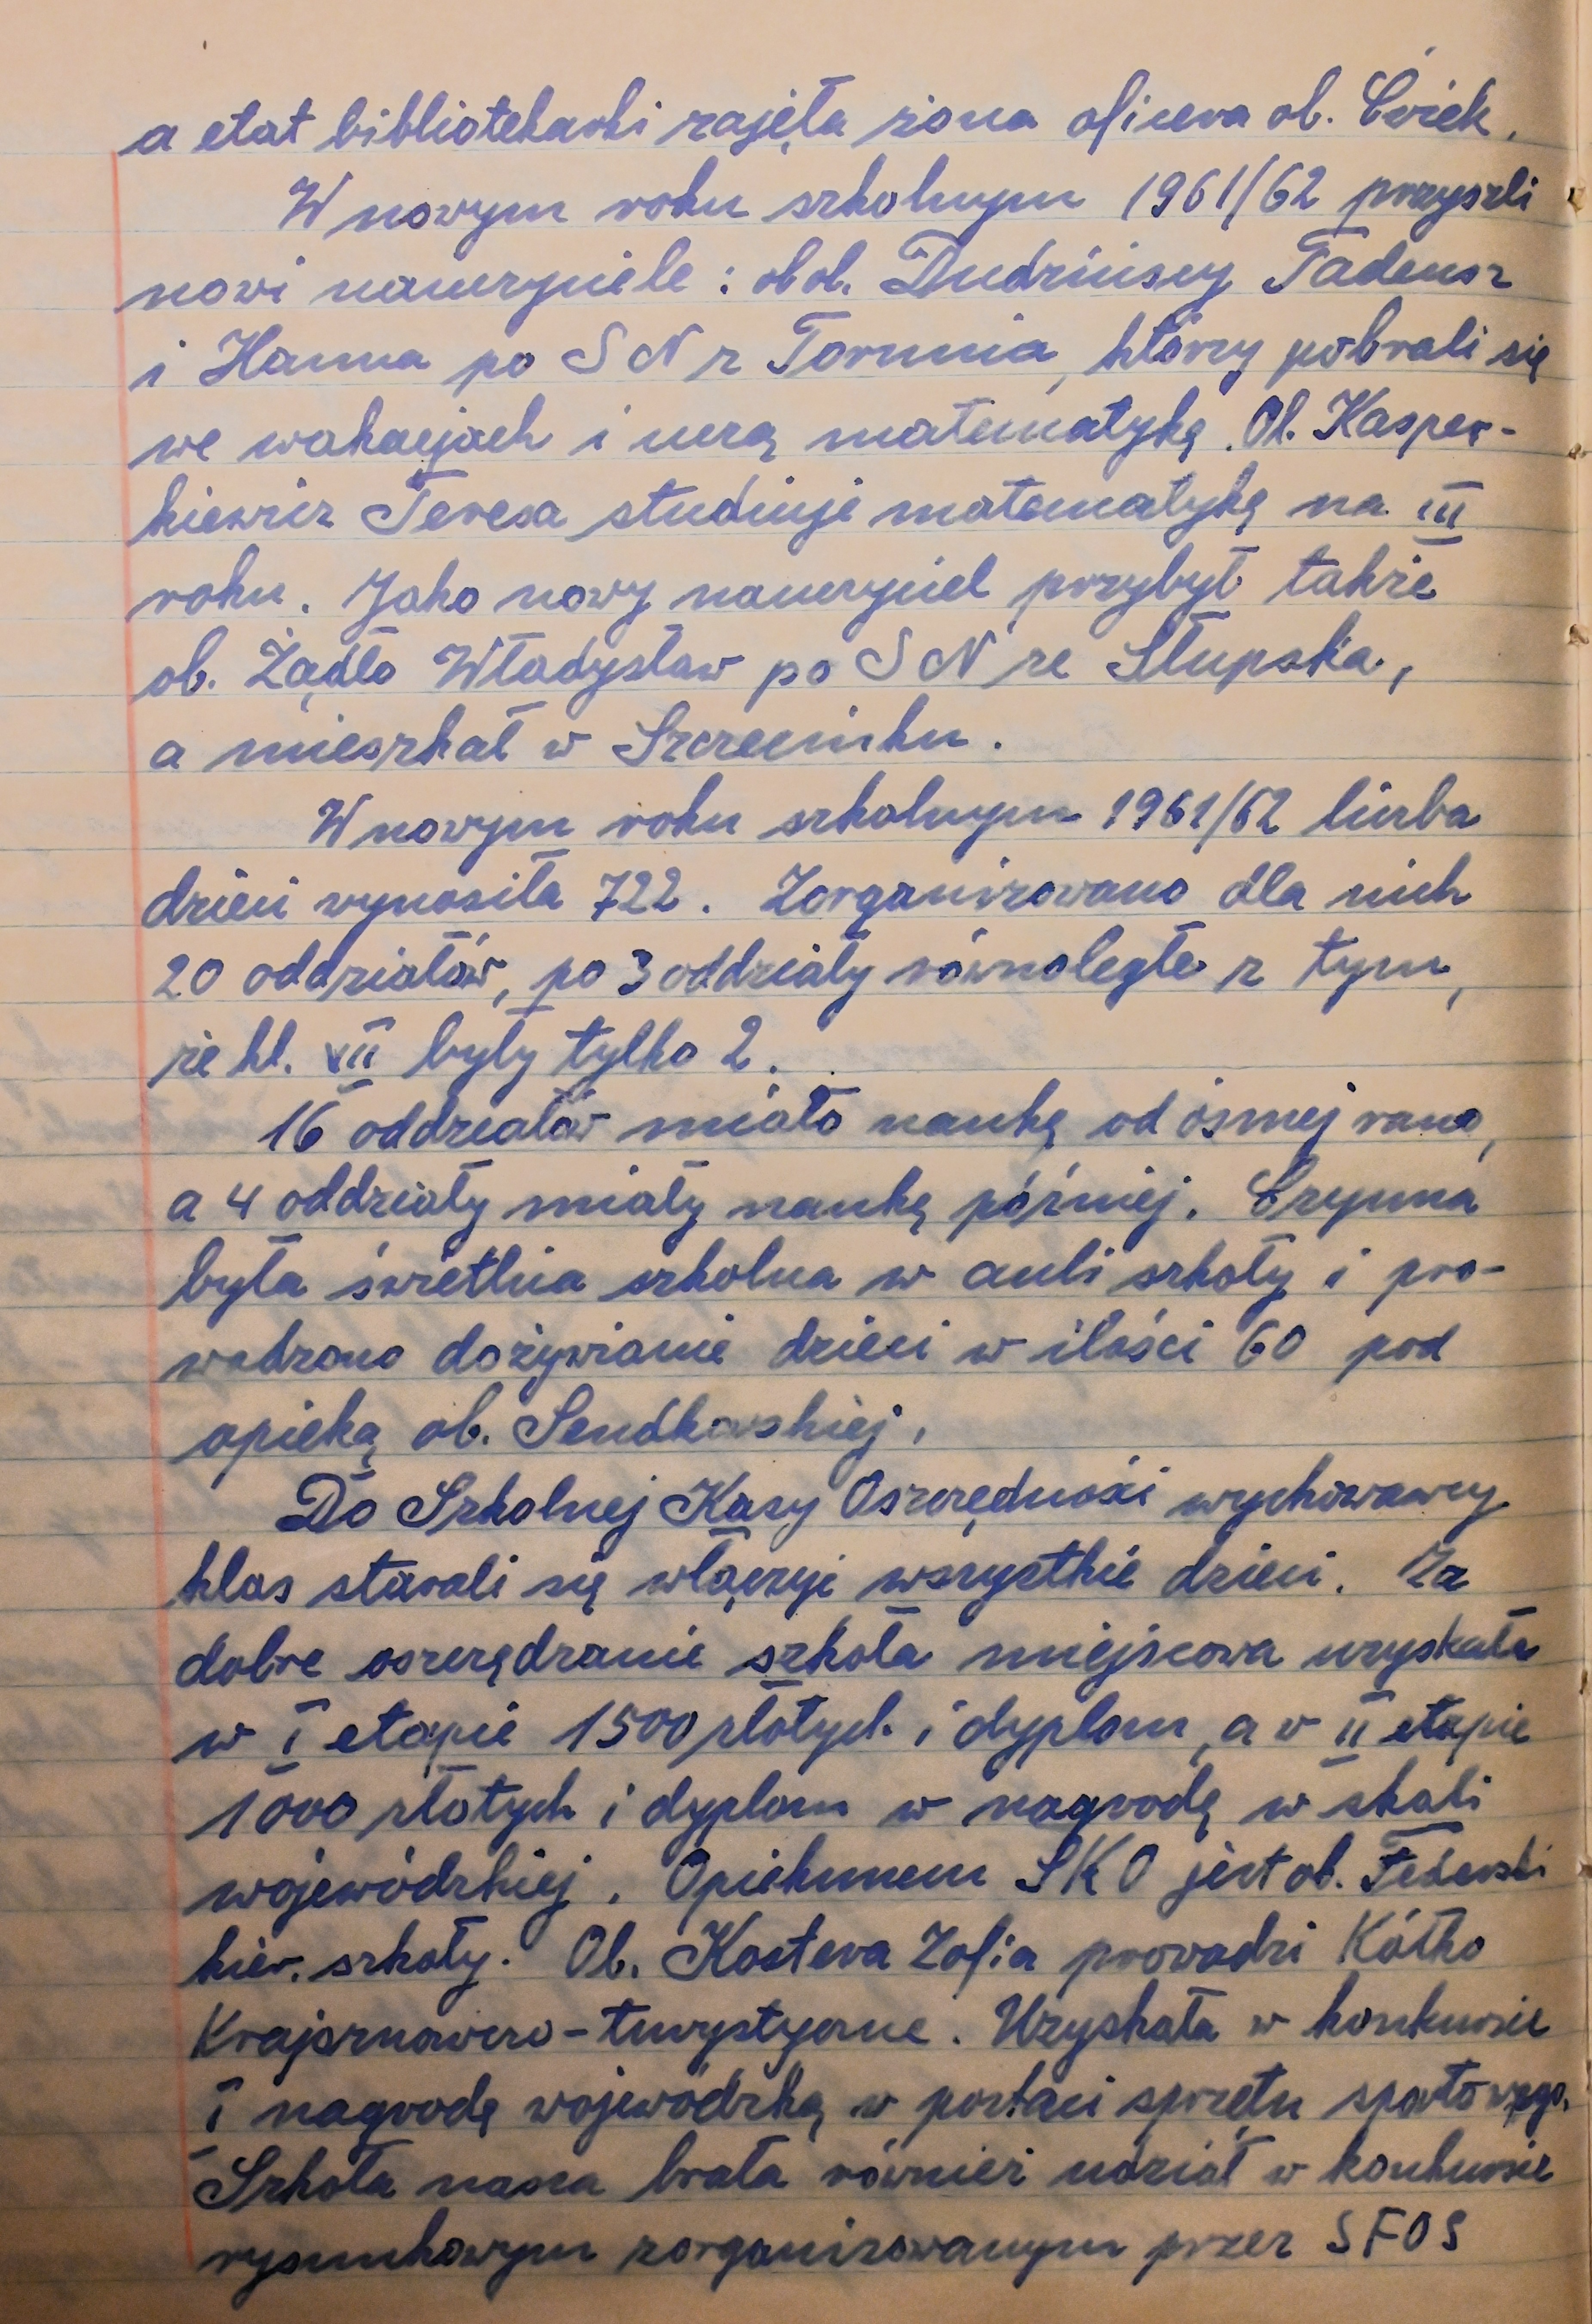 a etat bibliotekarki zajęła żona oficera ob. Ćwiek.
W nowym roku szkolnym 1961/62 przyszli
nowi nauczyciele: ob.ob. Dudzińscy Tadeusz
i Hanna po SN z Torunia, którzy pobrali się
we wakacjach i uczą matematykę. Ob. Kasper-
kiewicz Teresa studiuje matematykę na III
roku. Jako nowy nauczyciel przybył także
ob. Żądło Władysław po SN ze Słupska,
a mieszkał w Szczecinku.
W nowym roku szkolnym 1961/62 liczba
dzieci wynosiła 722. Zorganizowano dla nich
20 oddziałów, po 3 oddziały równoległe z tym,
że kl. VII były tylko 2.
16 oddziałów miało naukę od ósmej rano,
a 4 oddziały miały naukę później. Czynna
była świetlica szkolna w auli szkoły i pro-
wadzono dożywianie dzieci w ilości 60 pod
opieką ob. Sendkowskiej.
Do Szkolnej Kasy Oszczędności wychowawcy
klas starali się włączyć wszystkie dzieci. Za
dobre oszczędzanie szkoła miejscowa uzyskała
w I etapie 1500 złotych i dyplom, a w II etapie
1000 złotych i dyplom w nagrodę w skali
wojewódzkiej. Opiekunem SKO jest ob.
kier. szkoły. Ob. Kostera Zofia prowadzi Kółko
Krajoznawczo-turystyczne. Uzyskała w konkursie
I nagrodę wojewódzką w postaci sprzętu sportowego.
Szkoła nasza brała również udział w konkursie
rysunkowym zorganizowanym przez SFOS